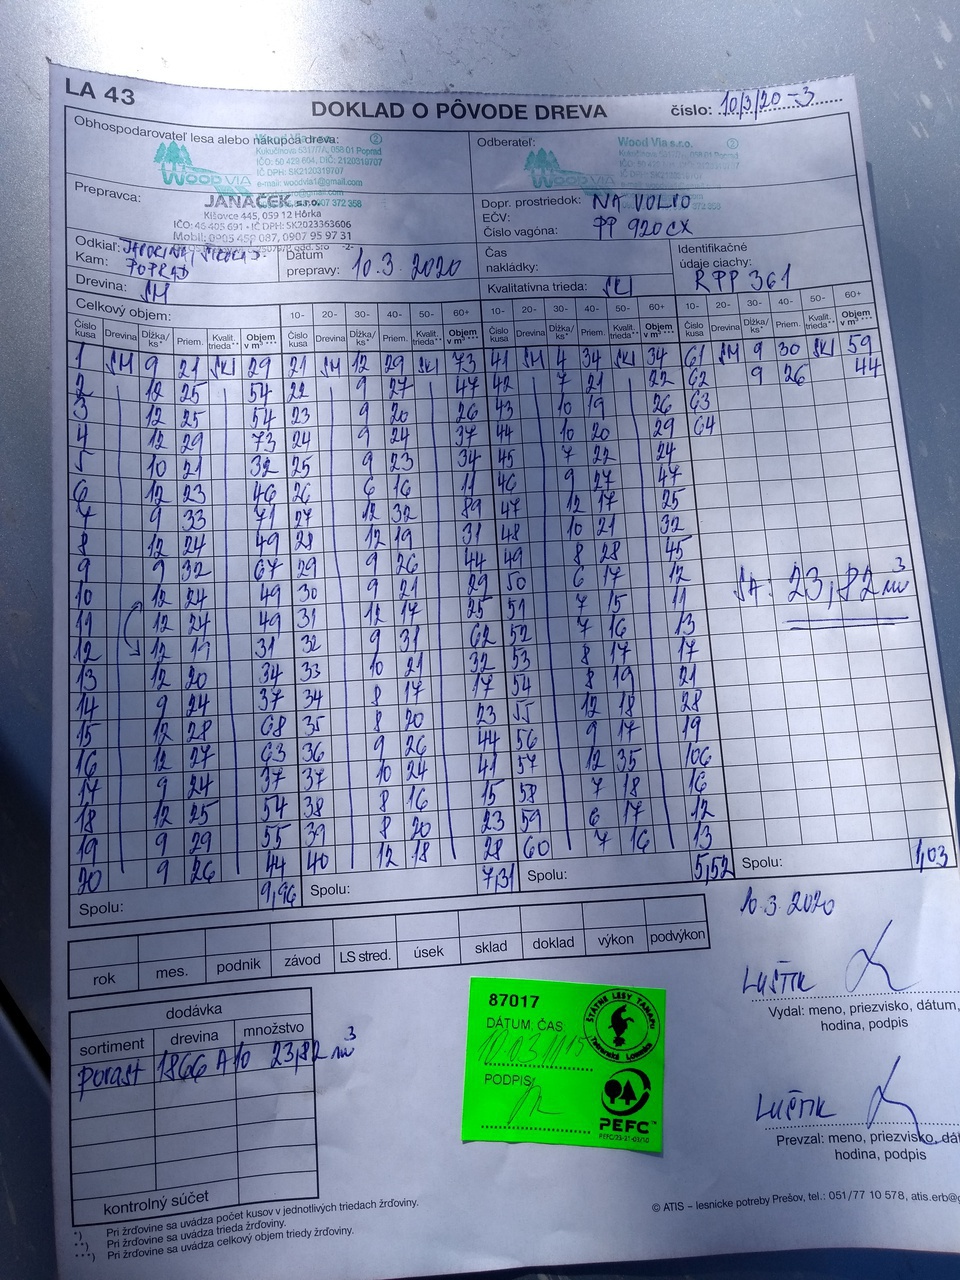 LA 43
DOKLAD O PÔVODE DREVA
číslo: 10/3/20-3
Obhospodarovateľ lesa alebo nákupca dreva:
Wood Via s.r.o. 2
Kukučínova 5317/7A, 058 01 Poprad
IČO: 50 429 604, DIČ: 2120319707
IČ DPH: SK2120319707
e-mail: woodvia1@gmail.com
WOOD VIA
Odberateľ:
Wood Via s.r.o. 2
Prepravca:
JANÁČEK s.r.o.
Kišovce 445, 059 12 Hôrka
IČO: 46 405 691 • IČ DPH: SK2023363606
Mobil: 0905 459 087, 0907 95 97 31
Dopr. prostriedok: NA VOLVO
EČV: PP 920CX
Číslo vagóna:
Odkiaľ:
Kam: POPRAD
Dátum prepravy: 10.3.2020
Čas nakládky:
Identifikačné údaje ciachy: RPP 361
Drevina: SM
Kvalitatívna trieda: SKI
Celkový objem: 10- 20- 30- 40- 50- 60+ 10- 20- 30- 40- 50- 60+ 10- 20- 30- 40- 50- 60+
Číslo kusa Drevina Dĺžka/ks* Priem. Kvalit. trieda** Objem v m³ *** Číslo kusa Drevina Dĺžka/ks* Priem. Kvalit. trieda** Objem v m³ *** Číslo kusa Drevina Dĺžka/ks* Priem. Kvalit. trieda** Objem v m³ *** Číslo kusa Drevina Dĺžka/ks* Priem. Kvalit. trieda** Objem v m³ ***
1 SM 9 21 SKI 29 21 SM 12 29 SKI 73 41 SM 4 34 SKI 34 61 SM 9 30 SKI 59
2 12 25 54 22 9 27 47 42 7 21 22 62 9 26 44
3 12 25 54 23 9 20 26 43 10 19 26 63
4 12 29 73 24 9 24 37 44 10 20 29 64
5 10 21 32 25 9 23 34 45 7 22 24
6 12 23 46 26 6 16 11 46 9 27 47
7 9 33 71 27 12 32 89 47 12 17 25
8 12 24 49 28 12 19 31 48 10 21 32
9 9 32 67 29 9 26 44 49 8 28 45
10 12 24 49 30 9 21 29 50 6 17 12
11 12 24 49 31 12 17 25 51 7 15 11
12 12 19 31 32 9 31 62 52 7 16 13
13 12 20 34 33 10 21 32 53 8 17 17
14 9 24 37 34 8 17 17 54 8 19 21
15 12 28 68 35 8 20 23 55 12 18 28
16 12 27 63 36 9 26 44 56 9 17 19
17 9 24 37 37 10 24 41 57 12 35 106
18 12 25 54 38 8 16 15 58 7 18 16
19 9 29 55 39 8 20 23 59 6 17 12
20 9 26 44 40 12 18 28 60 7 16 13
23,82 m³
Spolu: 9,96 Spolu: 7,31 Spolu: 5,52 Spolu: 1,03
10.3.2020
rok mes. podnik závod LS stred. úsek sklad doklad výkon podvýkon
LUŠTIK
Vydal: meno, priezvisko, dátum,
hodina, podpis
dodávka
sortiment drevina množstvo
porast 1866 A10 23,82 m³
kontrolný súčet
87017
DÁTUM, ČAS
PODPIS
ŠTÁTNE LESY TANAPU
Tatranská Lomnica
PEFC™
LUŠTIK
Prevzal: meno, priezvisko, dá
hodina, podpis
*) Pri žrďovine sa uvádza počet kusov v jednotlivých triedach žrďoviny.
**) Pri žrďovine sa uvádza trieda žrďoviny.
***) Pri žrďovine sa uvádza celkový objem triedy žrďoviny.
© ATIS – lesnícke potreby Prešov, tel.: 051/77 10 578, atis.erb@